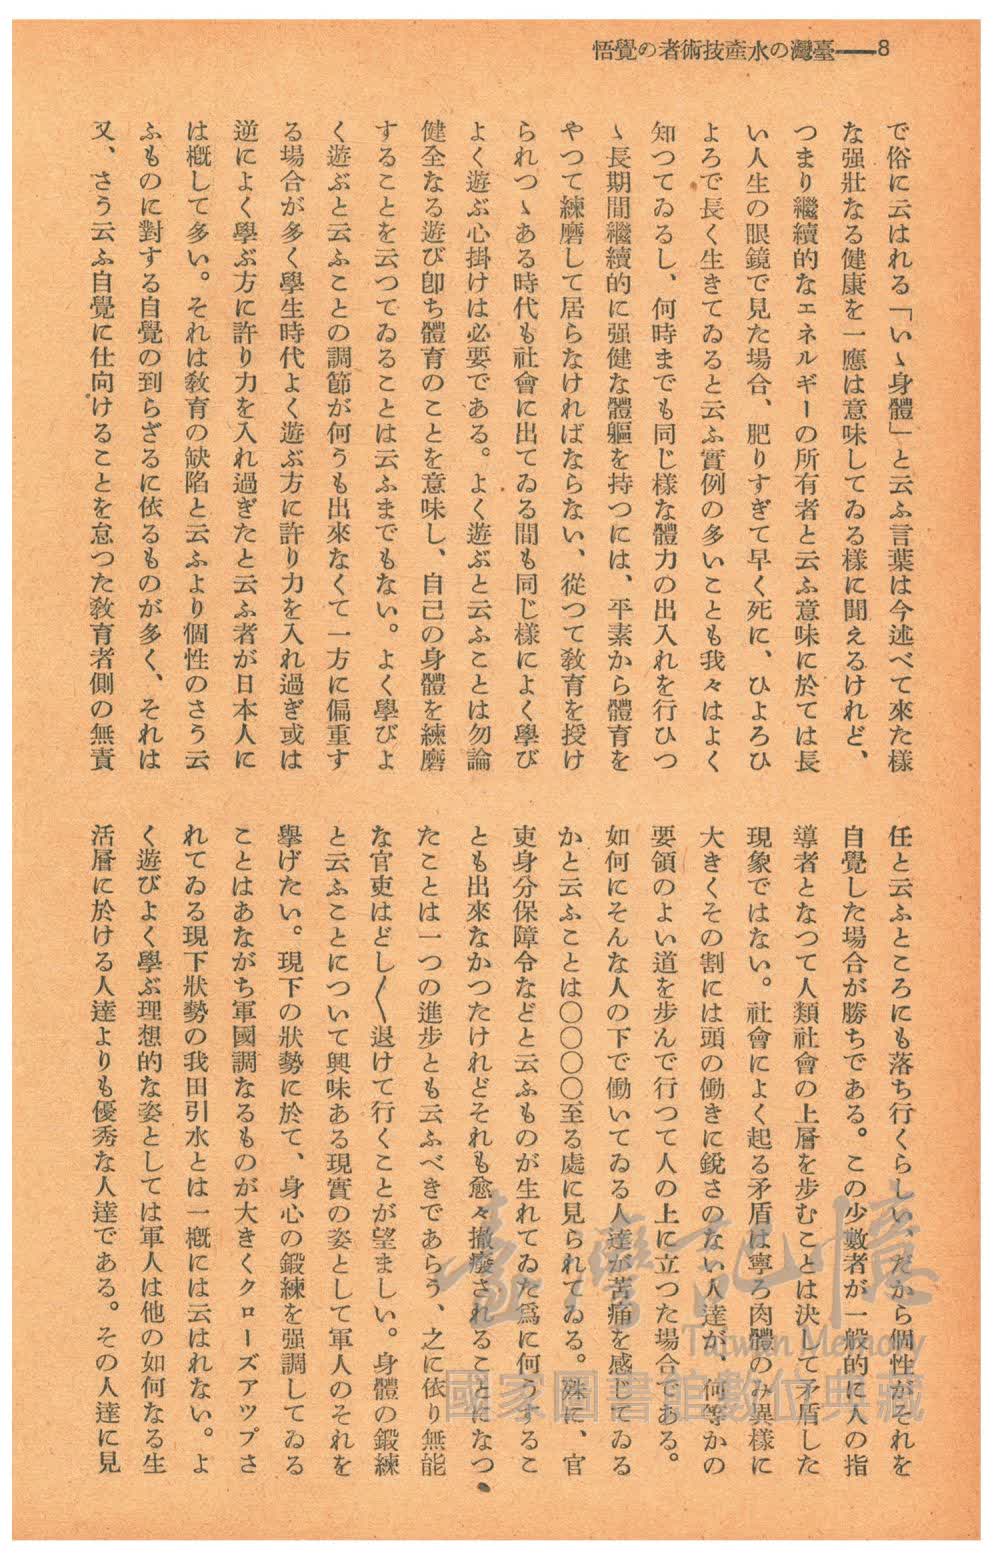 悟覺の者術技產水の灣臺——8
で俗に云はれる「いゝ身體」と云ふ言葉は今述べて來た樣
な强壯なる健康を一應は意味してゐる樣に聞えるけれど、
つまり繼續的なエネルギーの所有者と云ふ意味に於ては長
い人生の眼鏡で見た場合、肥りすぎて早く死に、ひよろひ
よろで長く生きてゐると云ふ實例の多いことも我々はよく
知つてゐるし、何時までも同じ樣な體力の出入れを行ひつ
ゝ長期間繼續的に强健な體軀を持つには、平素から體育を
やつて練磨して居らなければならない、從つて敎育を授け
られつゝある時代も社會に出てゐる間も同じ樣によく學び
よく遊ぶ心掛けは必要である。よく遊ぶと云ふことは勿論
健全なる遊び卽ち體育のことを意味し、自己の身體を練磨
することを云つてゐることは云ふまでもない。よく學びよ
く遊ぶと云ふことの調節が何うも出來なくて一方に偏重す
る場合が多く學生時代よく遊ぶ方に許り力を入れ過ぎ或は
逆によく學ぶ方に許り力を入れ過ぎたと云ふ者が日本人に
は槪して多い。それは敎育の缺陷と云ふより個性のさう云
ふものに對する自覺の到らざるに依るものが多く、それは
又、さう云ふ自覺に仕向けることを怠つた敎育者側の無責
任と云ふところにも落ち行くらしい、だから個性がそれを
自覺した場合が勝ちである。この少數者が一般的に人の指
導者となつて人類社會の上層を步むことは決して矛盾した
現象ではない。社會によく起る矛盾は寧ろ肉體のみ異樣に
大きくその割には頭の働きに銳さのない人達が、何等かの
要領のよい道を步んで行つて人の上に立つた場合である。
如何にそんな人の下で働いてゐる人達が苦痛を感じてゐる
かと云ふことは〇〇〇〇至る處に見られてゐる。殊に、官
吏身分保障令などと云ふものが生れてゐた爲に何うするこ
とも出來なかつたけれどそれも愈々撤廢されることになつ
たことは一つの進步とも云ふべきであらう、之に依り無能
な官吏はどし〳〵退けて行くことが望ましい。身體の鍛練
と云ふことについて興味ある現實の姿として軍人のそれを
擧げたい。現下の狀勢に於て、身心の鍛練を强調してゐる
ことはあながち軍國調なるものが大きくクローズアツプさ
れてゐる現下狀勢の我田引水とは一槪には云はれない。よ
く遊びよく學ぶ理想的な姿としては軍人は他の如何なる生
活層に於ける人達よりも優秀な人達である。その人達に見
臺灣記憶
Taiwan Memory
國家圖書館數位典藏